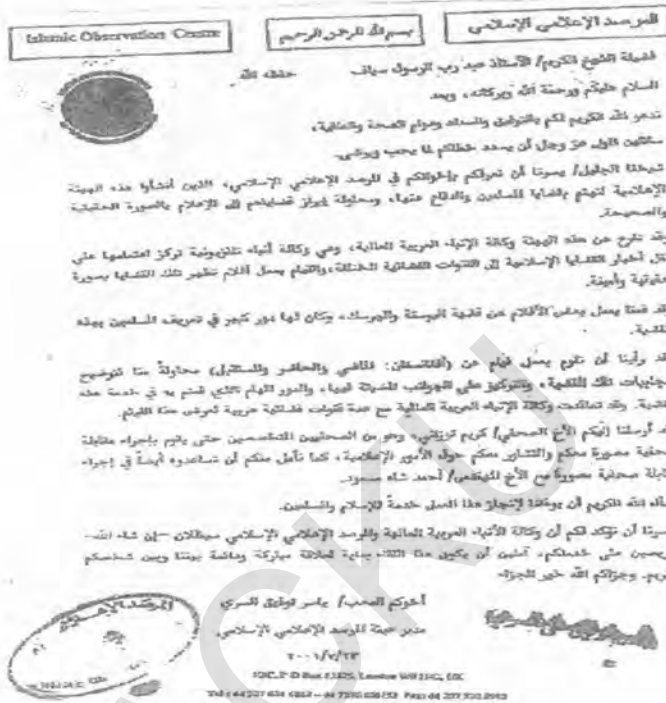 Islamic Observation Centre
بسم الله الرحمن الرحيم
المرصد الإعلامي الإسلامي
فضيلة الشيخ الكريم/ الأستاذ عبد رب الرسول سياف حفظه الله
السلام عليكم ورحمة الله وبركاته، وبعد
ندعو الله الكريم لكم بالتوفيق والسداد ودوام الصحة والعافية،
سائلين المولى عز وجل أن يسدد خطاكم لما يحب ويرضى.
شيخنا الجليل/ يسرنا أن نعرفكم بإخوانكم في المرصد الإعلامي الإسلامي، الذين أنشأوا هذه الهيئة
الإعلامية لتهتم بقضايا المسلمين والدفاع عنها، ومحاولة إبراز قضاياهم إلى الإعلام بالصورة الحقيقية
والصحيحة.
وقد تفرع عن هذه الهيئة وكالة الأنباء العربية العالمية، وهي وكالة أنباء تلفزيونية تركز اهتمامها على
نقل أخبار القضايا الإسلامية إلى القنوات الفضائية المختلفة، والقيام بعمل أفلام تظهر تلك القضايا بصورة
حقيقية وأمينة.
قد قمنا بعمل بعض الأفلام عن قضية البوسنة والهرسك، وكان لها دور كبير في تعريف المسلمين بهذه
القضية.
قد رأينا أن نقوم بعمل فيلم عن (أفغانستان: الماضي والحاضر والمستقبل) محاولة منا لتوضيح
إيجابيات تلك القضية، والتركيز على الجوانب المضيئة فيها، والدور الهام الذي قمتم به في خدمة هذه
القضية. وقد تعاقدت وكالة الأنباء العربية العالمية مع عدة قنوات فضائية عربية لعرض هذا الفيلم.
قد أرسلنا إليكم الأخ الصحفي/ كريم توزاني، وهو من الصحفيين المتخصصين حتى يقوم بإجراء مقابلة
صحفية مصورة معكم والتشاور معكم حول الأمور الإعلامية، كما نأمل منكم أن تساعدوه أيضاً في إجراء
مقابلة صحفية مصورة مع الأخ أحمد شاه مسعود.
الله الكريم أن يوفقنا لإنجاز هذا العمل خدمة للإسلام والمسلمين.
يسرنا أن نؤكد لكم أن وكالة الأنباء العربية العالمية والمرصد الإعلامي الإسلامي سيظلان -إن شاء الله-
حريصين على خدمتكم، آملين أن يكون هذا اللقاء بداية لعلاقة مباركة ودائمة بيننا وبين شخصكم
الكريم. وجزاكم الله خير الجزاء
أخوكم المحب/ ياسر توفيق السري
مدير هيئة المرصد الإعلامي الإسلامي
London UK
ACKU